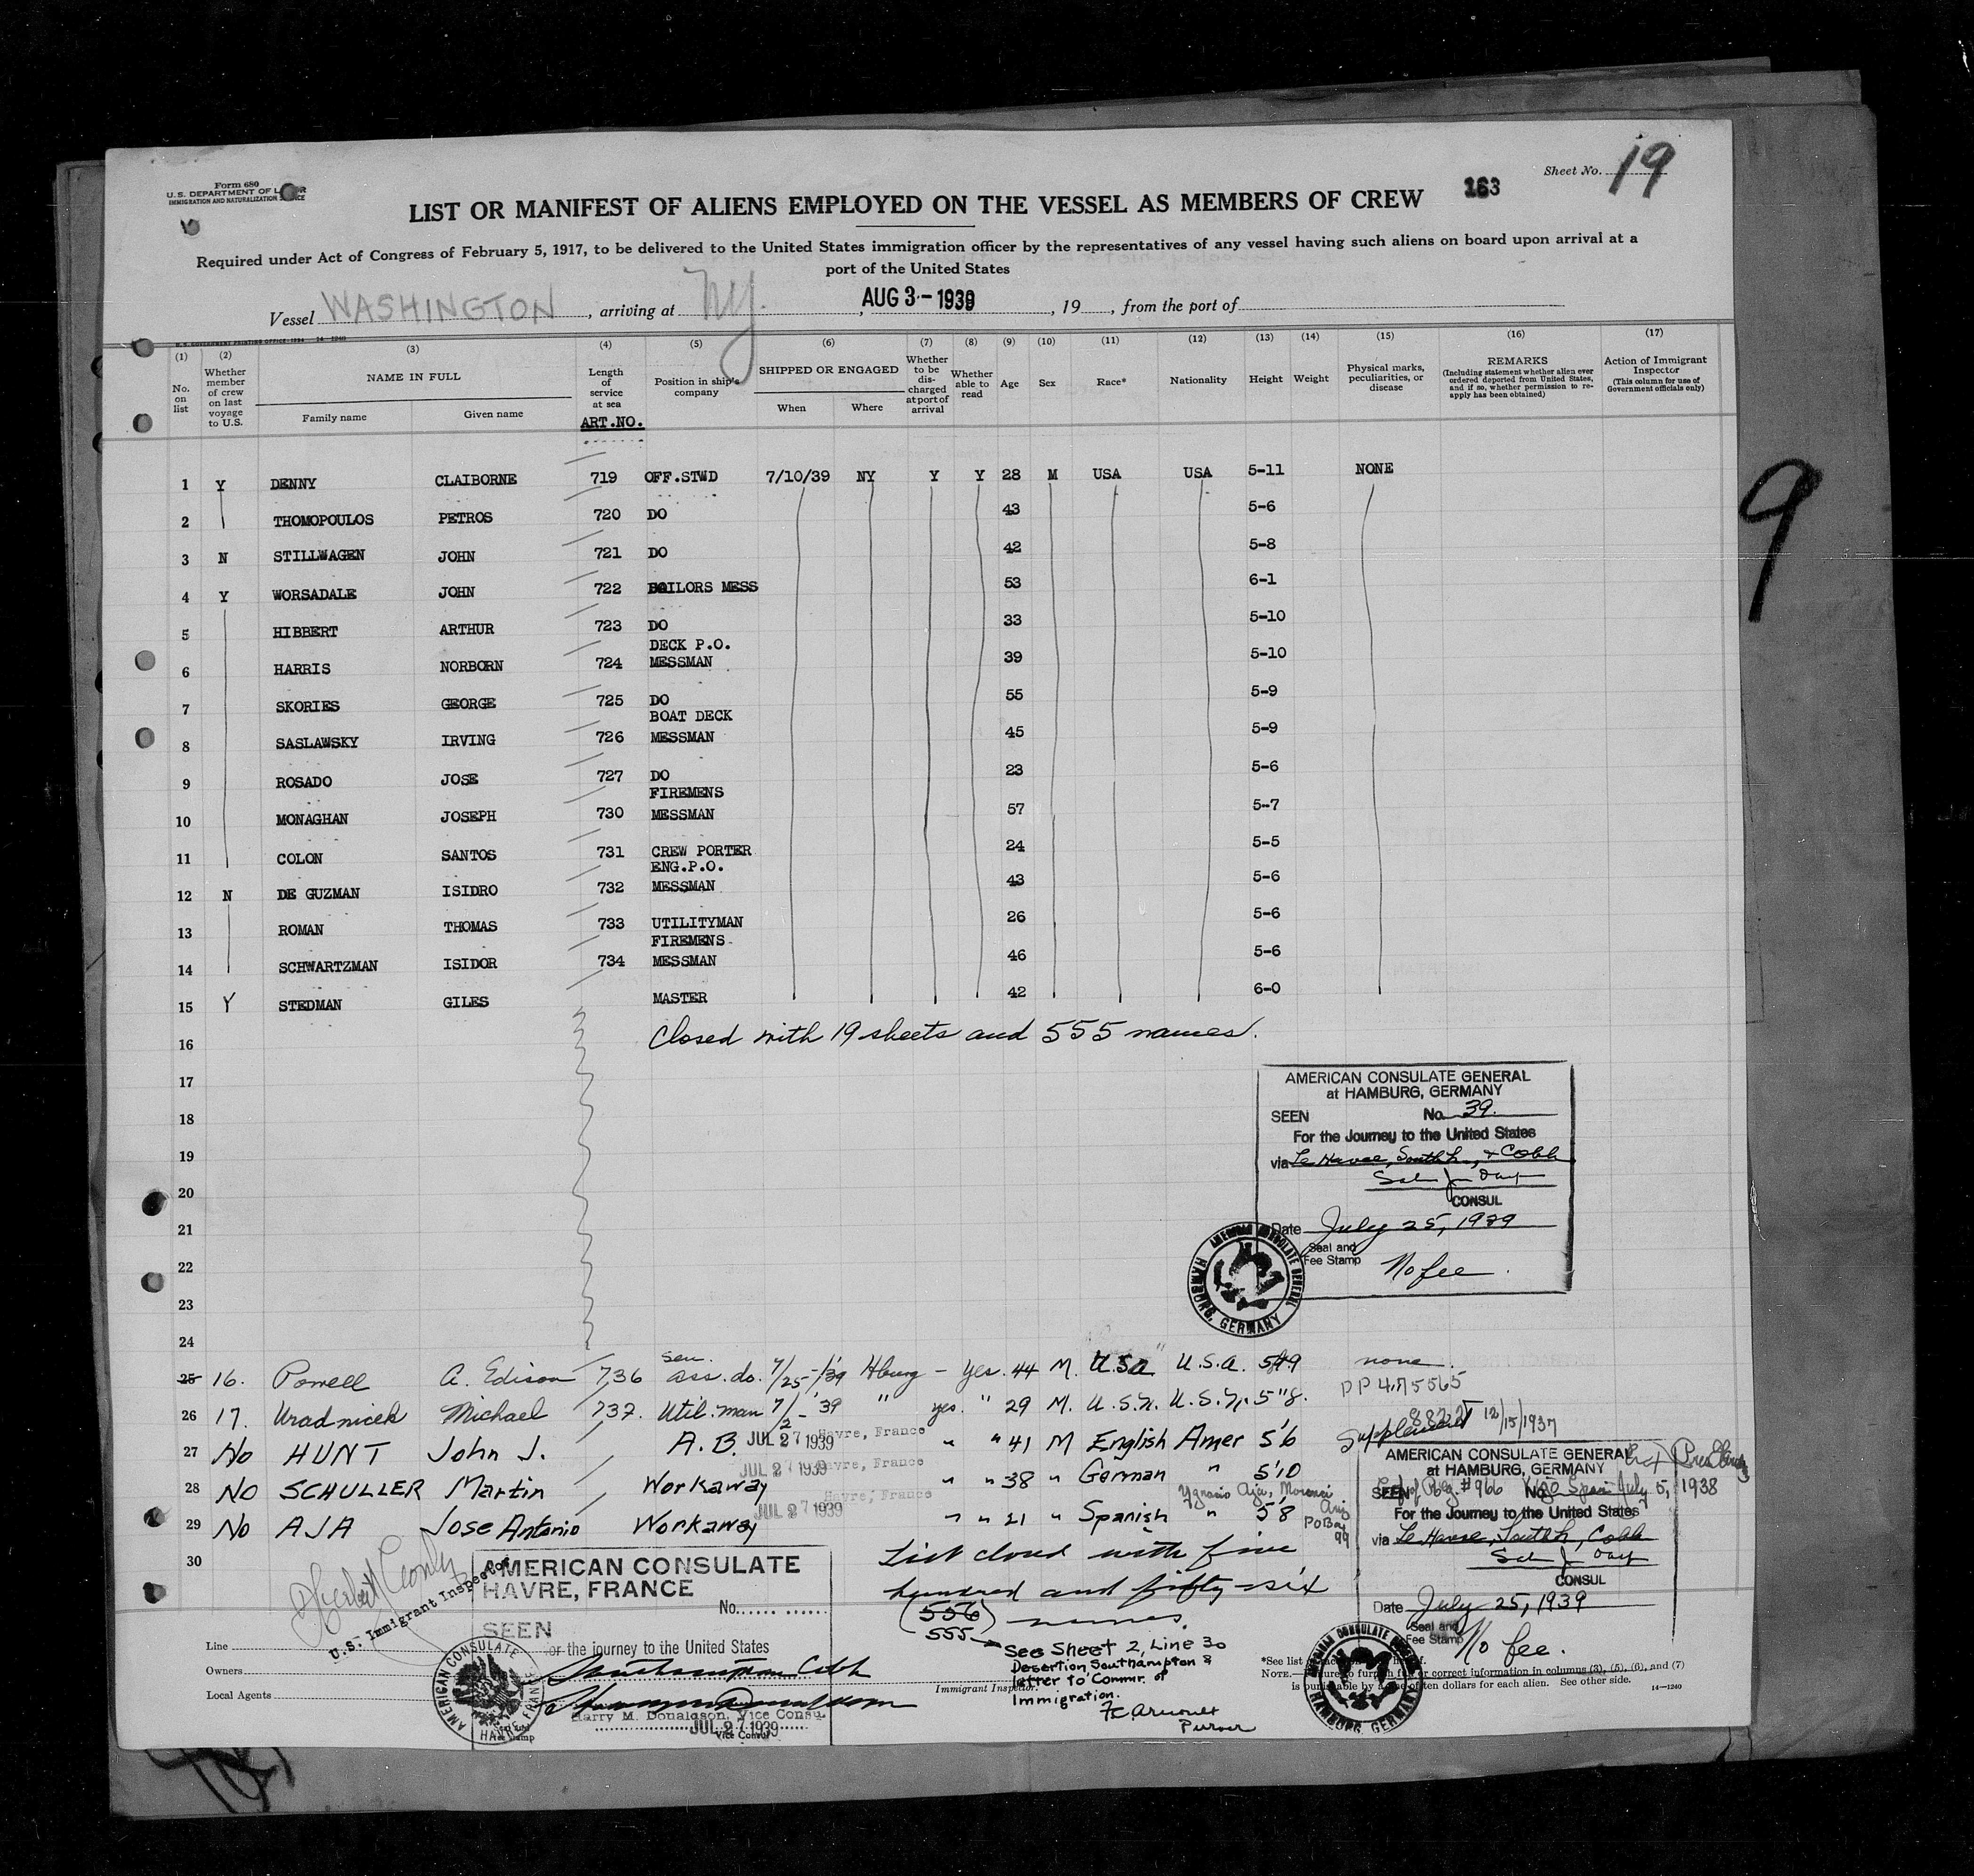 Form 680
U.S. DEPARTMENT OF LABOR
IMMIGRATION AND NATURALIZATION SERVICE
Sheet No. 19
163
LIST OR MANIFEST OF ALIENS EMPLOYED ON THE VESSEL AS MEMBERS OF CREW
Required under Act of Congress of February 5, 1917, to be delivered to the United States immigration officer by the representatives of any vessel having such aliens on board upon arrival at a
port of the United States
Vessel WASHINGTON, arriving at NY., AUG 3 - 1939, 19, from the port of
(1) No. on list
(2) Whether member of crew on last voyage to U.S.
(3) NAME IN FULL Family name Given name
(4) Length of service at sea ART.NO.
(5) Position in ship's company
(6) SHIPPED OR ENGAGED When Where
(7) Whether to be discharged at port of arrival
(8) Whether able to read
(9) Age
(10) Sex
(11) Race*
(12) Nationality
(13) Height
(14) Weight
(15) Physical marks, peculiarities, or disease
(16) REMARKS (Including statement whether alien ever ordered deported from United States, and if so, whether permission to reapply has been obtained)
(17) Action of Immigrant Inspector (This column for use of Government officials only)
1 Y DENNY CLAIBORNE 719 OFF.STWD 7/10/39 NY Y Y 28 M USA USA 5-11 NONE
2 THOMOPOULOS PETROS 720 DO 43 5-6
3 N STILLWAGEN JOHN 721 DO 42 5-8
4 Y WORSADALE JOHN 722 SAILORS MESS 53 6-1
5 HIBBERT ARTHUR 723 DO 33 5-10
6 HARRIS NORBORN 724 DECK P.O. MESSMAN 39 5-10
7 SKORIES GEORGE 725 DO 55 5-9
8 SASLAWSKY IRVING 726 BOAT DECK MESSMAN 45 5-9
9 ROSADO JOSE 727 DO 23 5-6
10 MONAGHAN JOSEPH 730 FIREMENS MESSMAN 57 5-7
11 COLON SANTOS 731 CREW PORTER 24 5-5
12 N DE GUZMAN ISIDRO 732 ENG.P.O. MESSMAN 43 5-6
13 ROMAN THOMAS 733 UTILITYMAN 26 5-6
14 SCHWARTZMAN ISIDOR 734 FIREMENS MESSMAN 46 5-6
15 Y STEDMAN GILES MASTER 42 6-0
16 Closed with 19 sheets and 555 names.
17
18
19
20
21
22
23
24
AMERICAN CONSULATE GENERAL
at HAMBURG, GERMANY
SEEN No. 39
For the Journey to the United States
via Le Havre, South'n, & Cobh
CONSUL
Date July 25, 1939
Seal and
Fee Stamp No fee.
AMERICAN CONSULATE GENERAL
HAMBURG, GERMANY
25 16. Powell A. Edison 736 sen. ass. do. 7/25-/39 Hburg - Yes. 44 M. USA U.S.A. 5 9 none.
PP 475565
26 17. Uradnicek Michael 737. Util. man 39 " yes. " 29 M. 5"8.
12/15/1937
Supplement
27 No HUNT John J. A.B. JUL 27 1939 Havre, France " " 41 M English Amer 5'6
28 NO SCHULLER Martin Workaway JUL 27 1939 Havre, France " " 38 " German " 5'10
29 No AJA Jose Antonio Workaway JUL 27 1939 Havre, France " " 21 " Spanish " 5'8
Ygnacio Aja, Morenci
Ariz
PO Box
99
30
List closed with five
hundred and fifty-six
(556) names.
555
See Sheet 2, Line 30
Desertion, Southampton &
letter to Commr. of
Immigration.
Purser
AMERICAN CONSULATE GENERAL
at HAMBURG, GERMANY
SEEN No.
#966 Vigo Spain July 5, 1938
For the Journey to the United States
via Le Havre, South'n, Cobh
CONSUL
Date July 25, 1939
Seal and
Fee Stamp No fee.
HAMBURG, GERMANY
AMERICAN CONSULATE
HAVRE, FRANCE
No.
SEEN
for the journey to the United States
Southampton Cobh
Harry M. Donaldson, Vice Consul
JUL 27 1939
Vice Consul
AMERICAN CONSULATE HAVRE, FRANCE
U.S. Immigrant Inspector
Line
Owners
Local Agents
Immigrant Inspector.
*See list
NOTE.—Failure to furnish full or correct information in columns (3), (5), (6), and (7)
is punishable by a fine of ten dollars for each alien. See other side.
14—1240
9